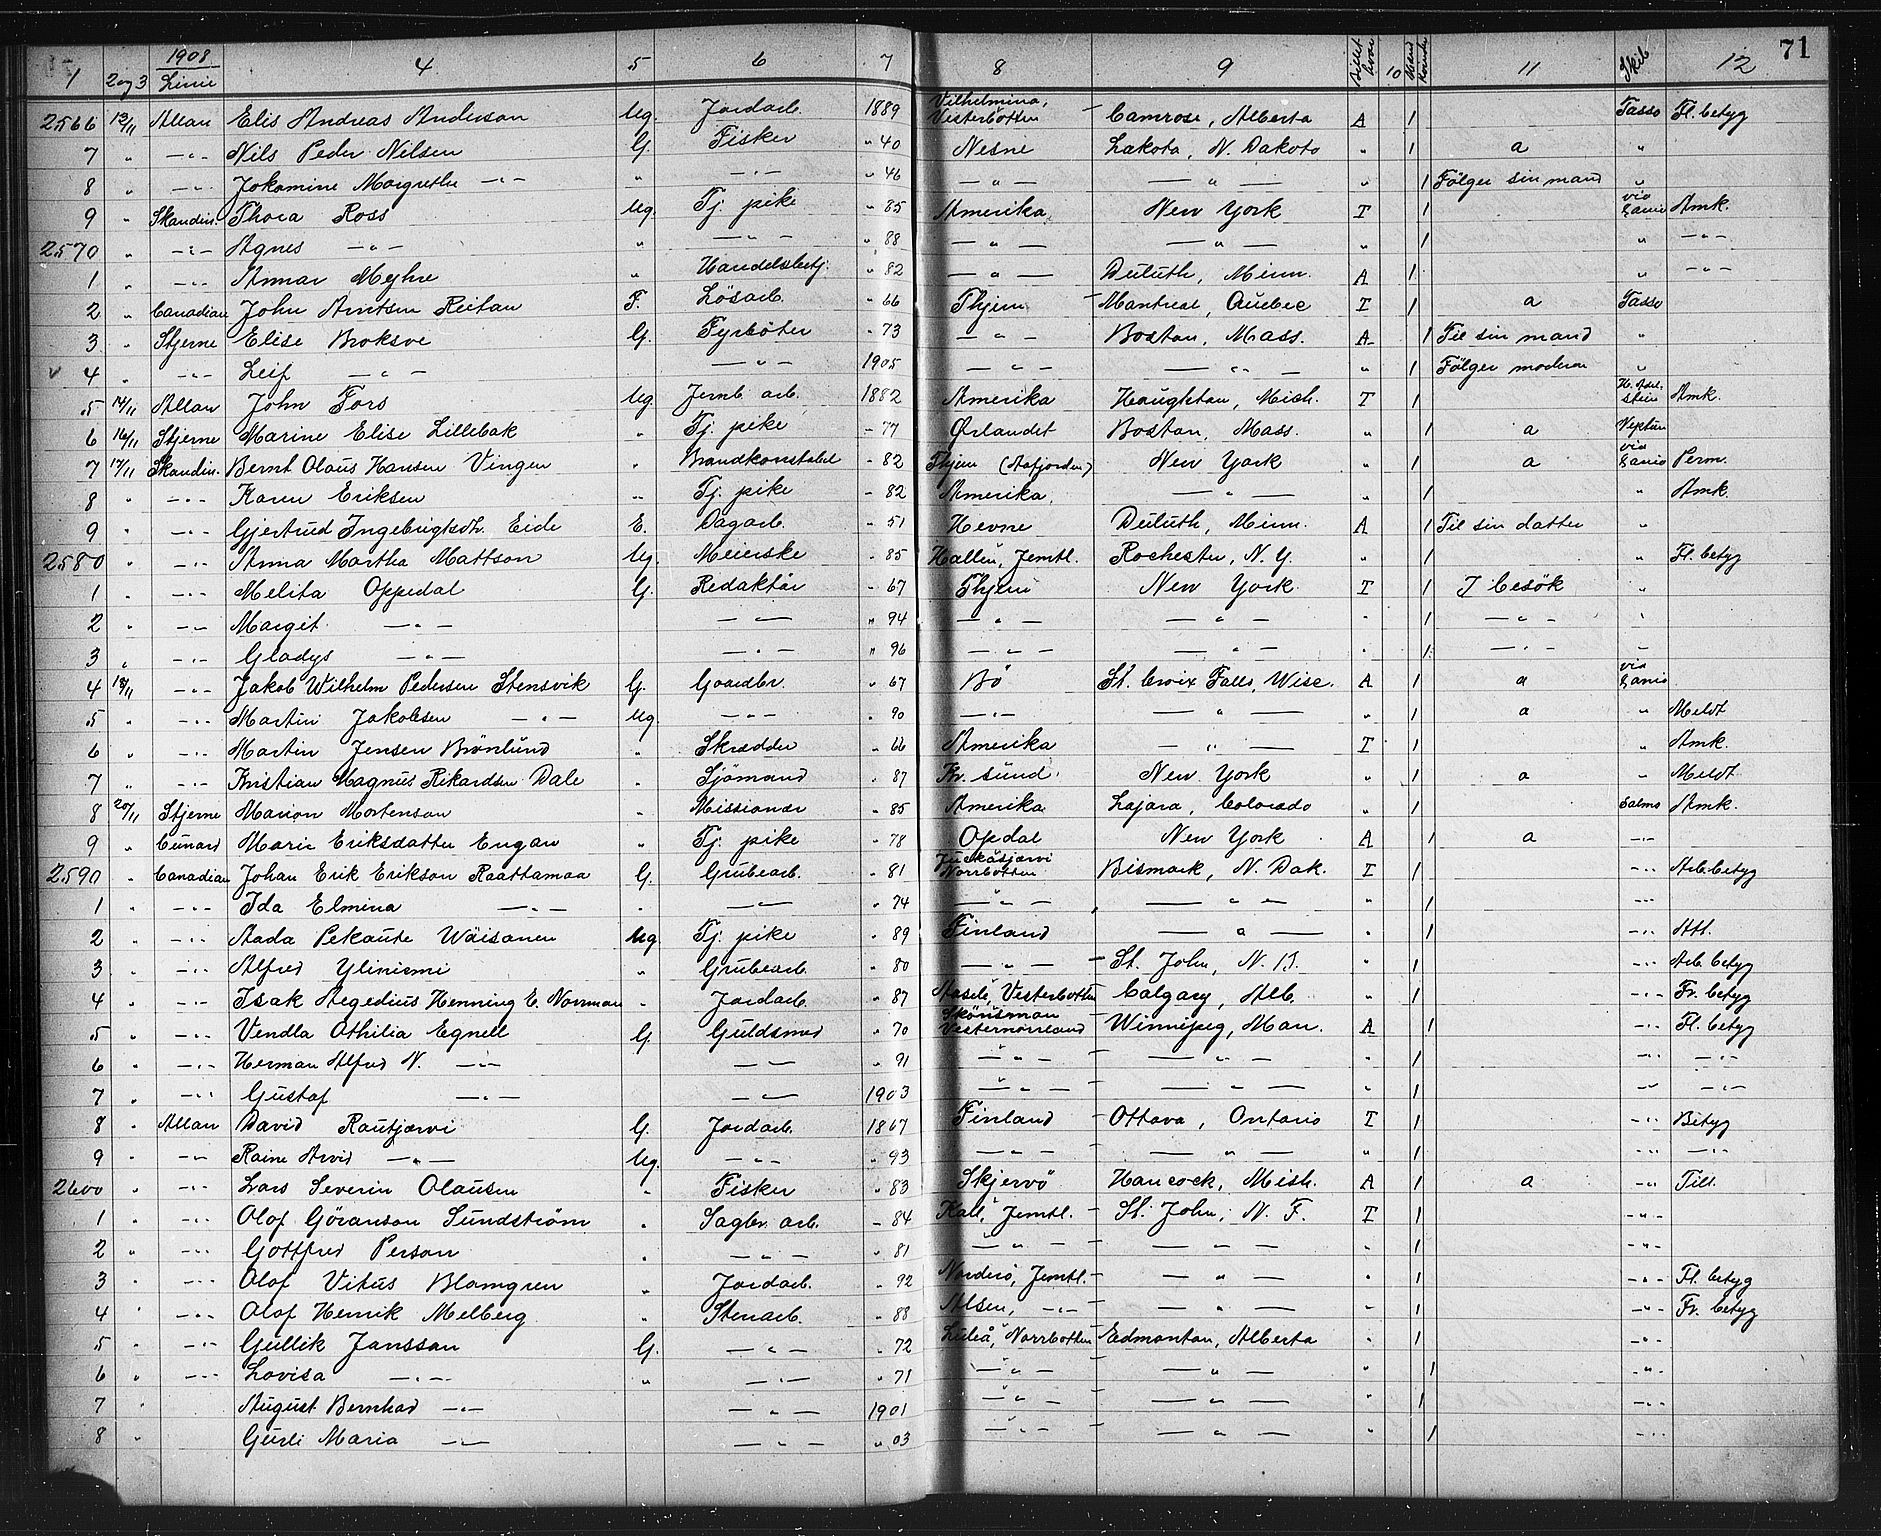 71
1908
1 2 og 3 Linie 4 5 6 7 8 9 Billet hvor 10 Mand Kvinde 11 Skib 12
2566 13/11 Allan Elis Andreas Anderson Ug. Jordarb. 1889 Vilhelmina, Vesterbotten Camrose, Alberta A 1 Tasso Fl. betyg
7 " -"- Nils Peder Nilsen G. Fisker " 40 Nesne Lakota, N. Dakota " 1 a "
8 " -"- Jokamine Margrethe -"- " -"- " 46 -"- -"- " 1 Følger sin mand "
9 " Skandin. Thora Ross Ug. Tj. pike " 85 Amerika New York T 1 via Hans Amk.
2570 " -"- Agnes -"- " -"- " 88 -"- -"- " 1 " -"-
1 " -"- Annar Myhre " Handelsbetj. " 82 -"- Duluth, Minn. A 1 " -"-
2 " Canadian John Arntsen Reitan F. Løsarb. " 66 Thjem Montreal, Quebec T 1 a Tasso
3 " Stjerne Elise Broksve G. Fyrbøter " 73 -"- Boston, Mass. A 1 Til sin mand "
4 " -"- Leif -"- -"- 1905 -"- -"- " 1 Følger moderen "
5 14/11 Allan John Fors Ug. Jernb. arb. 1882 Amerika Haughtan, Mich. T 1 Amk.
6 16/11 Stjerne Marine Elise Lillebak " Tj. pike - 77 Ørlandet Boston, Mass. " 1 a Neptun
7 17/11 Skandin. Bernt Olaus Hansen Vingen " Brandkonstabel - 82 Thjem (Aafjorden) New York " 1 a via Perm.
8 " -"- Karen Eriksen " Tj. pike - 82 Amerika -"- " 1 " Amk.
9 " -"- Gjertrud Ingebrigtsdtr. Eide E. Dagarb. - 51 Hevne Duluth, Minn. A 1 Til sin datter "
2580 " -"- Anna Martha Mattson Ug. Meierske " 85 Hallen, Jemtl. Rochester, N. Y. " 1 " Fl. betyg
1 " -"- Melita Oppedal G. Redaktør " 67 Thjem New York T 1 I besøk "
2 " -"- Margit -"- -"- " 94 -"- -"- " 1 -"- "
3 " -"- Gladys -"- -"- " 96 -"- -"- 1 -"- "
4 18/11 -"- Jakob Wilhelm Pedersen Stensvik G. Gaardbr. " 67 Bø St. Croix Falls, Wisc. A 1 a via
5 " -"- Martin Jakobsen -"- Ug. -"- " 90 -"- -"- " 1 a " Meldt
6 " -"- Martin Jensen Brønlund " Skrædder " 66 Amerika -"- T 1 " Amk.
7 " -"- Kristian Magnus Rikardsen Dale " Sjømand " 87 Kr. sund. New York " 1 a " Meldt
8 20/11 Stjerne Marion Mortenson " Missionær " 85 Amerika Lajara, Colorado " 1 Salmo Amk.
9 " Cunard Marie Eriksdatter Engan " Tj. pike " 78 Opdal New York A 1 a -"-
2590 " Canadian Johan Erik Erikson Raattamaa G. Grubearb. " 81 Juckasjærvi Norrbotten Bismark, N. Dak. T 1 -"- Arb. betyg
1 " -"- Ida Elmina -"- " -"- " 74 -"- -"- " 1 -"-
2 " -"- Aada Pekaute Wäisanen Ug. Tj. pike " 89 Finland -"- " 1 -"- Att.
3 " -"- Alfred Yliniemi " Grubearb. " 80 -"- St. John, N. B. " 1 -"- Arb. betyg
4 " -"- Isak Aegedius Henning E. Norrman " Jordarb. " 87 Aasele, Vesterbotten Calgary, Alb. " 1 -"- Fr. betyg
5 " -"- Vendla Othilia Egnell G. Guldsmed " 70 Skönsmon Vesternorrland Winnipeg, Man. A 1 -"- Fl. betyg
6 " -"- Herman Alfred N. -"- -"- " 91 -"- -"- " 1 -"- -"-
7 " -"- Gustaf -"- -"- 1903 -"- -"- " 1 -"- -"-
8 " Allan David Rautjærvi G. Jordarb. 1867 Finland Ottava, Ontario T 1 -"- Betyg
9 " -"- Raine Arvid -"- Ug. -"- " 93 -"- -"- " 1 -"- -"-
2600 " -"- Lars Severin Olausen " Fisker " 83 Skjervø Hancock, Mich. A 1 a -"- Till.
1 " -"- Olof Göranson Sundström " Sagbr. arb. - 84 Kall, Jemtl. St. John, N. F. T 1 -"-
2 " -"- Gottfred Person " -"- " 81 -"- -"- " 1 -"-
3 " -"- Olof Vitus Blomgren " Jordarb. " 92 Norderö, Jemtl. -"- " 1 -"- Fl. betyg
4 " -"- Olof Henrik Melberg " Stenarb. " 88 Alsen, -"- -"- " 1 -"- Fr. betyg
5 " -"- Gullik Jansson G. -"- " 72 Luleå, Norrbotten Edmontan, Alberta " 1 -"-
6 " -"- Lovisa -"- " -"- " 71 -"- -"- " 1 -"-
7 " August Bernhard -"- -"- 1901 -"- -"- " 1 -"-
8 " Gurli Maria -"- -"- " 03 -"- -"- " 1 -"-